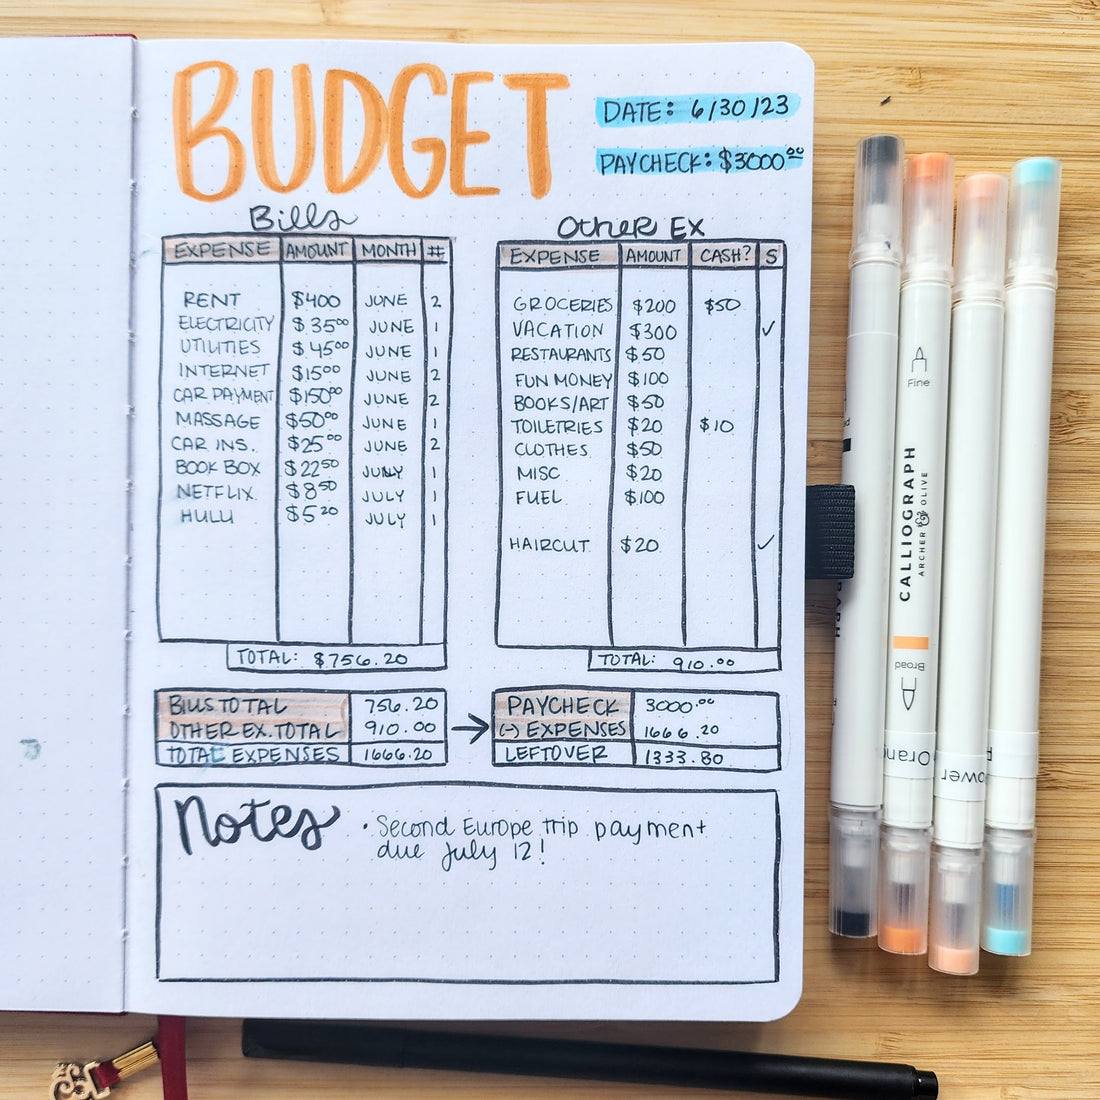 BUDGET
DATE: 6/30/23
PAYCHECK: $3000.00
Bills
EXPENSE AMOUNT MONTH #
RENT $400 JUNE 2
ELECTRICITY $35.00 JUNE 1
UTILITIES $45.00 JUNE 1
INTERNET $15.00 JUNE 2
CAR PAYMENT $150.00 JUNE 2
MASSAGE $50.00 JUNE 1
CAR INS. $25.00 JUNE 2
BOOK BOX $22.50 JULY 1
NETFLIX $8.50 JULY 1
HULU $5.20 JULY 1
TOTAL: $756.20
Other Ex
EXPENSE AMOUNT CASH? S
GROCERIES $200 $50
VACATION $300 ✓
RESTAURANTS $50
FUN MONEY $100
BOOKS/ART $50
TOILETRIES $20 $10
CLOTHES $50
MISC $20
FUEL $100
HAIRCUT $20 ✓
TOTAL: 910.00
BILLS TOTAL 756.20
OTHER EX. TOTAL 910.00
TOTAL EXPENSES 1666.20
PAYCHECK 3000.00
(-) EXPENSES 1666.20
LEFTOVER 1333.80
Notes
• Second Europe trip payment
due July 12!
Fine
CALLIOGRAPH
ARCHER & OLIVE
Broad